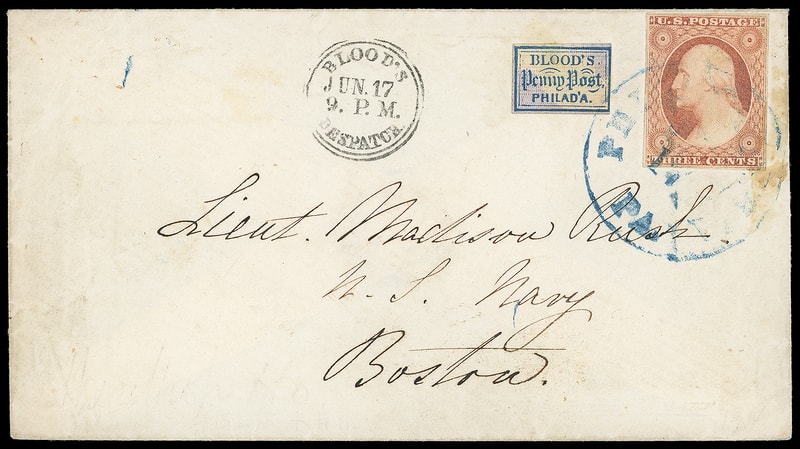 BLOOD'S
JUN. 17
9. P. M.
DESPATCH
BLOOD'S
Penny Post,
PHILAD'A.
U.S. POSTAGE
THREE CENTS
PA
Lieut. Madison Rush.
U. S. Navy
Boston.